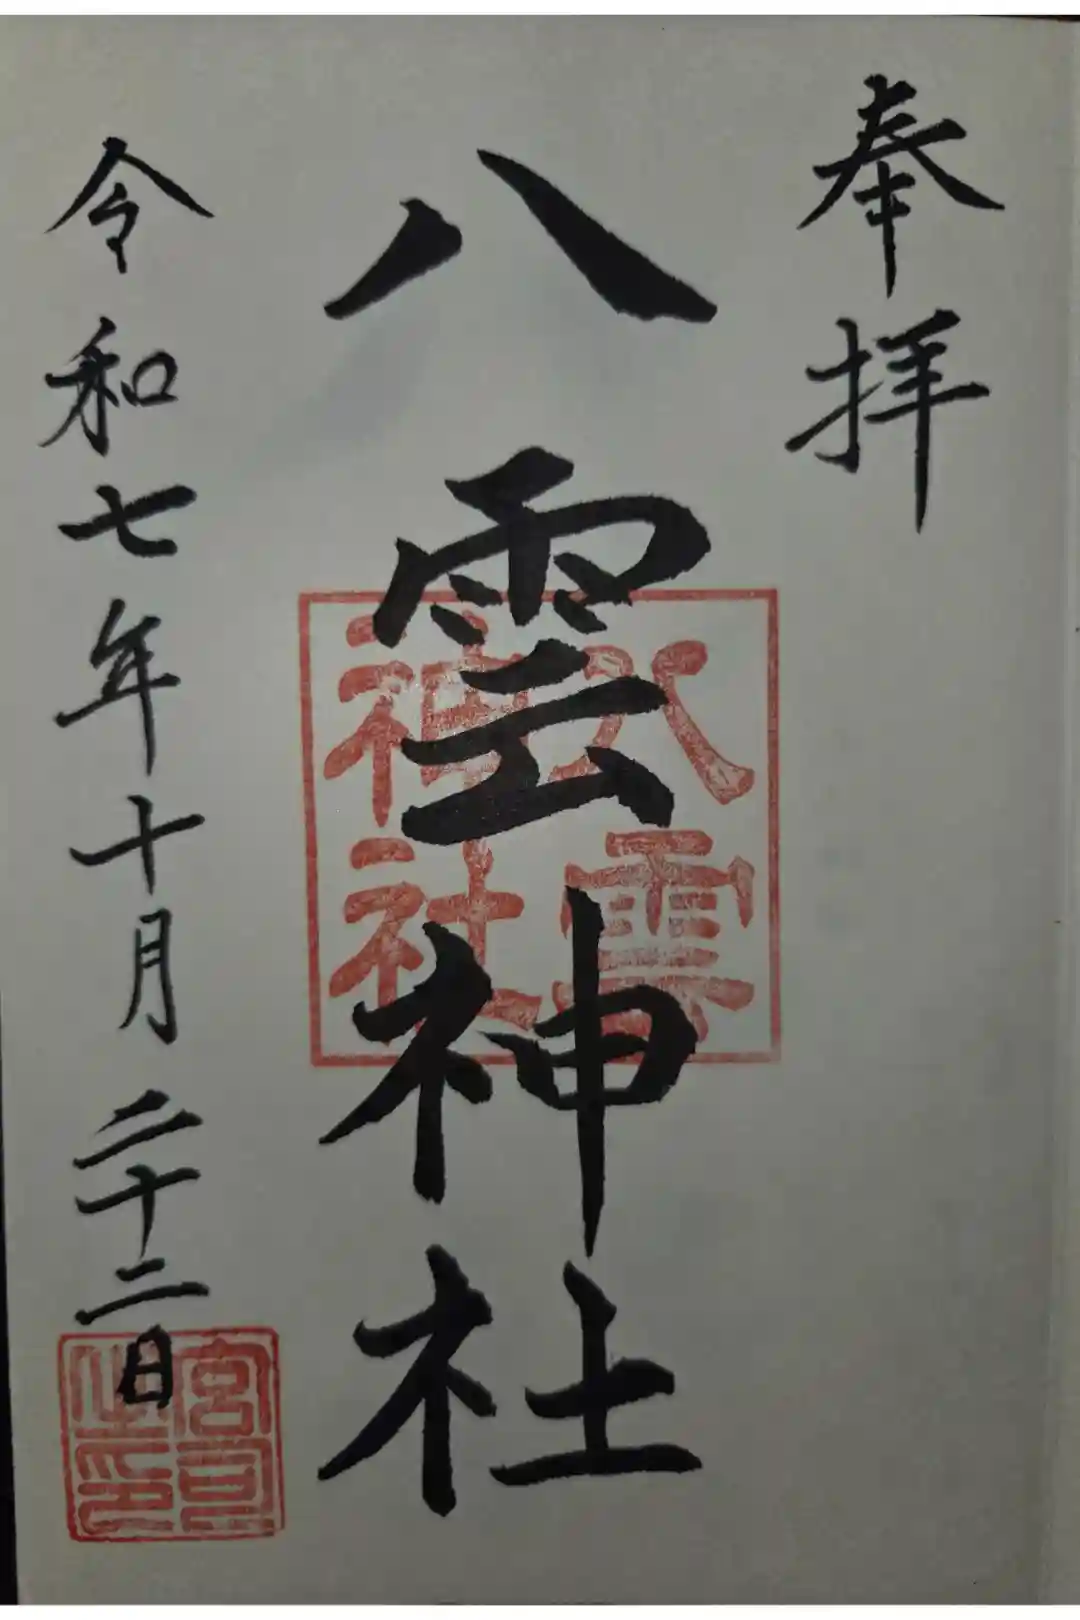 奉拝
八雲神社
八雲
神社
令和七年十月二十二日
宮司
之印